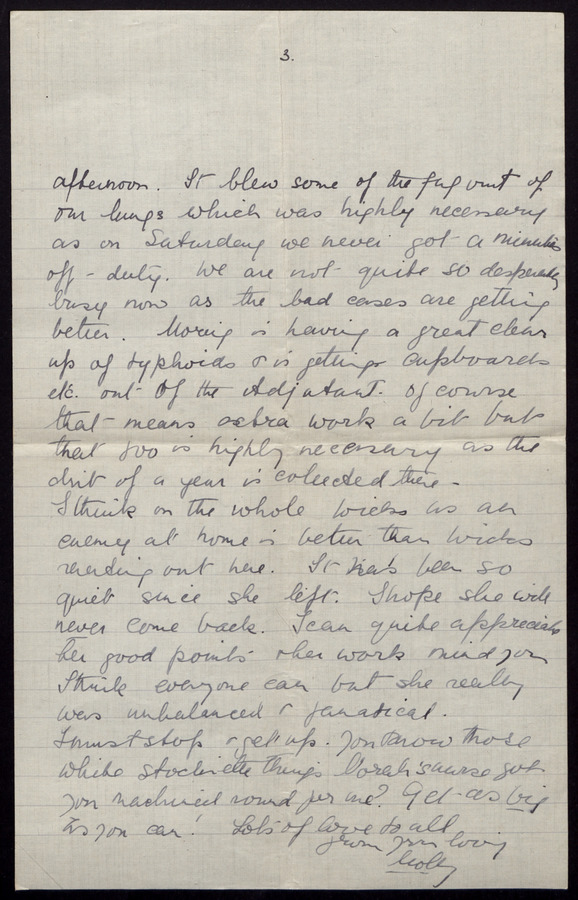 3.
afternoon. It blew some of the fug out of
our lungs which was highly necessary
as on Saturday we never got a minutes
off-duty. We are not quite so desperately
busy now as the bad cases are getting
better. is having a great clear
up of typhoids & is getting cupboards
etc. out of the Adjutant. Of course
that means extra work a bit but
that too is highly necessary as the
dirt of a year is collected there -
I think on the whole Wicks as an
enemy at home is better than Wicks
out here. It has been so
quiet since she left. I hope she will
never come back. I can quite appreciate
her good points & her work mind you
I think everyone can but she really
was unbalanced & fanatical.
I must stop & get up. You know those
white stockinette things nurse got
you round for me? Get as big
as you can! Lots of love to all
from your loving
Molly